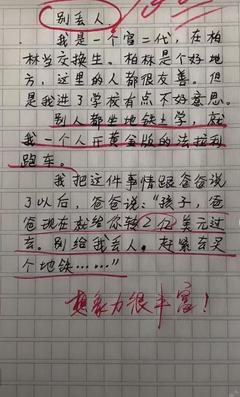 别丢人
我是一个富二代，在柏
林当交换生。柏林是个好地
方，这里的人都很友善。但
是我进了学校有点不好意思。
别人都坐地铁上学，就
我一个人开黄金版的法拉利
跑车。
我把这件事情跟爸爸说
了以后，爸爸说：“孩子，爸
爸现在就给你转2亿美元过
去。别给我丢人。赶紧去买
个地铁……”
想象力很丰富！